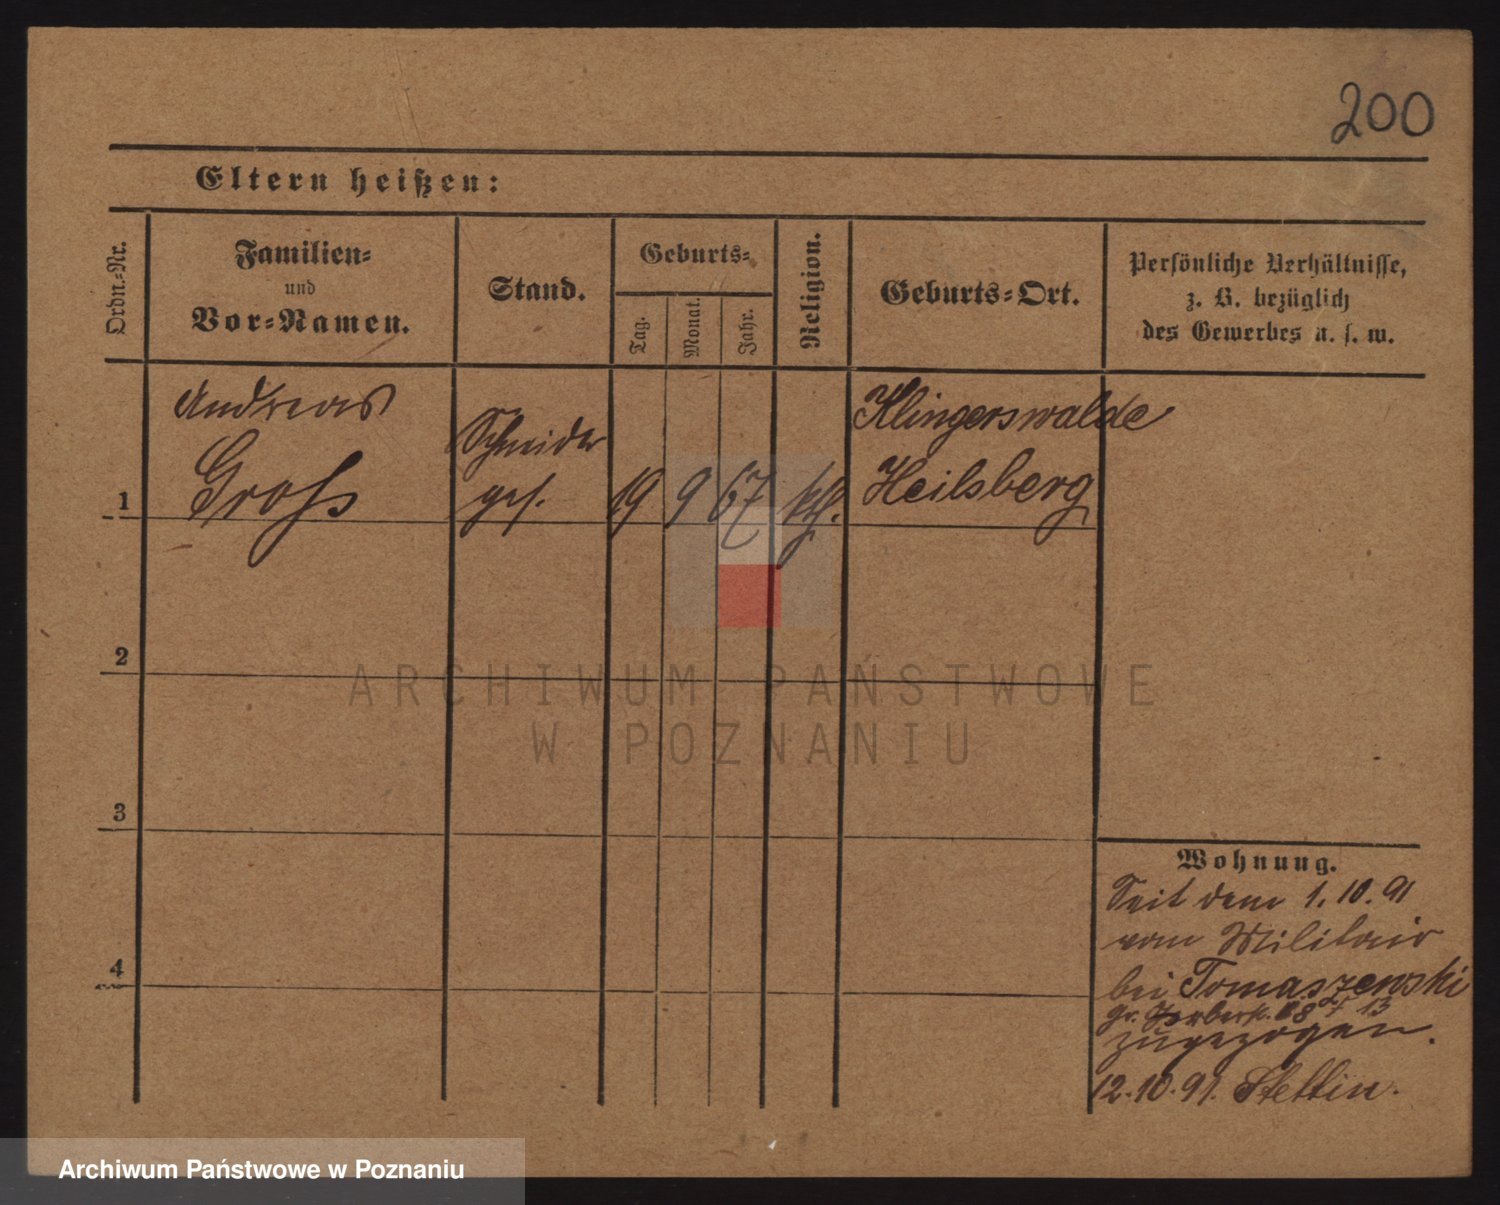 200
Eltern heißen:
Ordn.-Nr.
Familien-
und
Vor-Namen.
Stand.
Geburts-
Tag.
Monat.
Jahr.
Religion.
Geburts-Ort.
Persönliche Verhältnisse,
z. B. bezüglich
des Gewerbes u. s. w.
Andreas
Groß
Schneider
ges.
1
19 9 67 kth.
Klingerswalde
Heilsberg
2
3
4
Wohnung.
Seit dem 1.10.91
vom Militair
bei Tomaszewski
gr. 13
zugezogen.
12.10.91. Stettin.
ARCHIWUM PAŃSTWOWE
W POZNANIU
Archiwum Państwowe w Poznaniu